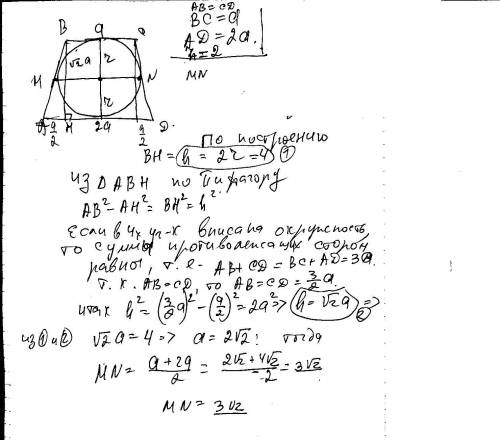 AB=CD
BC=a
AD=2a.
r=2
MN
B a C
√2a r
M N
r
A a/2 H 2a a/2 D.
По построению
BH= h = 2r =4 ①
Из ΔABH по Пифагору
AB²-AH²=BH²=h².
Если в 4х уг-к вписана окружность
то суммы противолежащих сторон
равны, т.е. AB+CD=BC+AD=3a.
т.к. AB=CD, то AB=CD=3/2 a.
итак h²=(3/2 a)²-(a/2)²=2a²=> h=√2a => ②
из ① и ② √2a=4=> a=2√2! тогда
MN= (a+2a)/2 = (2√2+4√2)/2 = 3√2
MN = 3√2